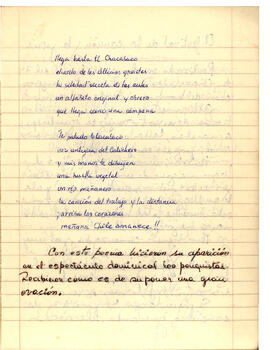 Llega hasta ti Chacabuco
el verde de los últimos
tu soledad secreta de las aulas
un alfabeto original y obrero
que llega como una campana
Tu pulido blanco
voz antigua del Calichero
y mis manos te dibujan
una huella vegetal
un río mañanero
la canción del trabajo y la distancia
¡arriba los corazones
mañana Chile amanece!!
Con este poema hicieron su aparición
en el espectáculo dominical los
Recibieron como es de suponer una gran
ovación.